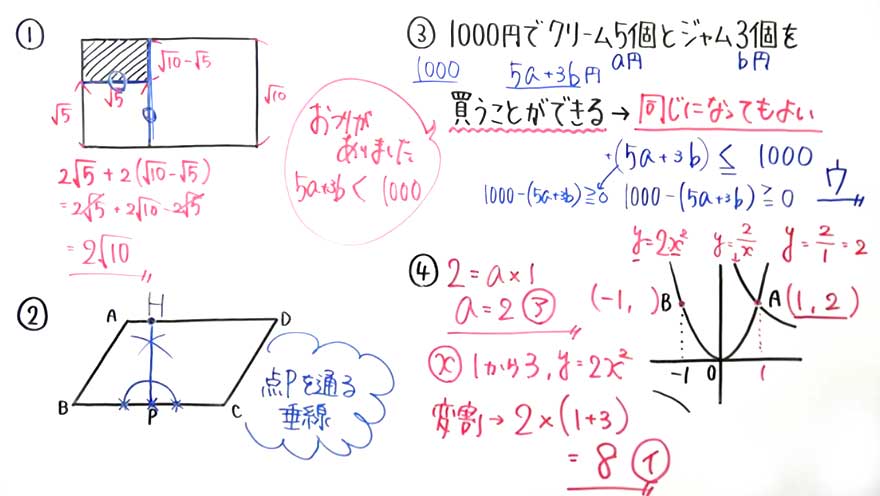 ①
√10-√5
√5
√5
√10
2√5+2(√10-√5)
=2√5+2√10-2√5
=2√10
おつりが
ありました
5a+3b<1000
②
A
H
D
B
P
C
点Pを通る
垂線
③ 1000円でクリーム5個とジャム3個を
1000
5a+3b円
a円
b円
買うことができる→同じになってもよい
(5a+3b)≦1000
1000-(5a+3b)≧0
1000-(5a+3b)≧0
ウ
④
2=a×1
a=2 ③
y=2x²
y=2/x
y=2/1=2
(-1, )B
A(1,2)
-1
0
1
ⓧ 1から3,y=2x²
変割→2×(1+3)
=8 ㋑